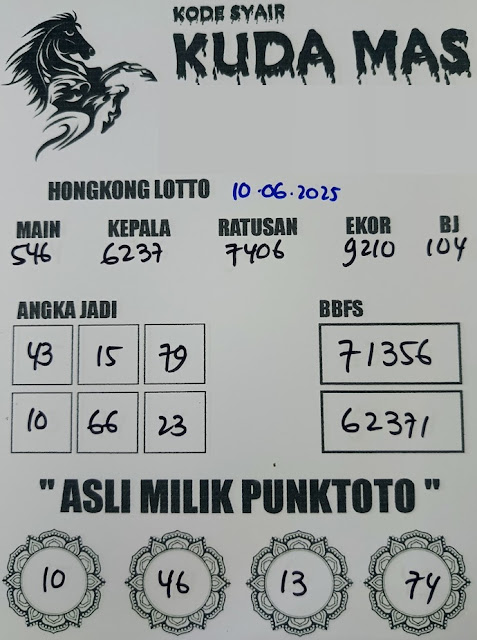 KODE SYAIR
KUDA MAS
HONGKONG LOTTO 10.06.2025
MAIN KEPALA RATUSAN EKOR BJ
546 6237 7406 9210 104
ANGKA JADI BBFS
43 15 79 71356
10 66 23 62371
" ASLI MILIK PUNKTOTO "
10 46 13 74